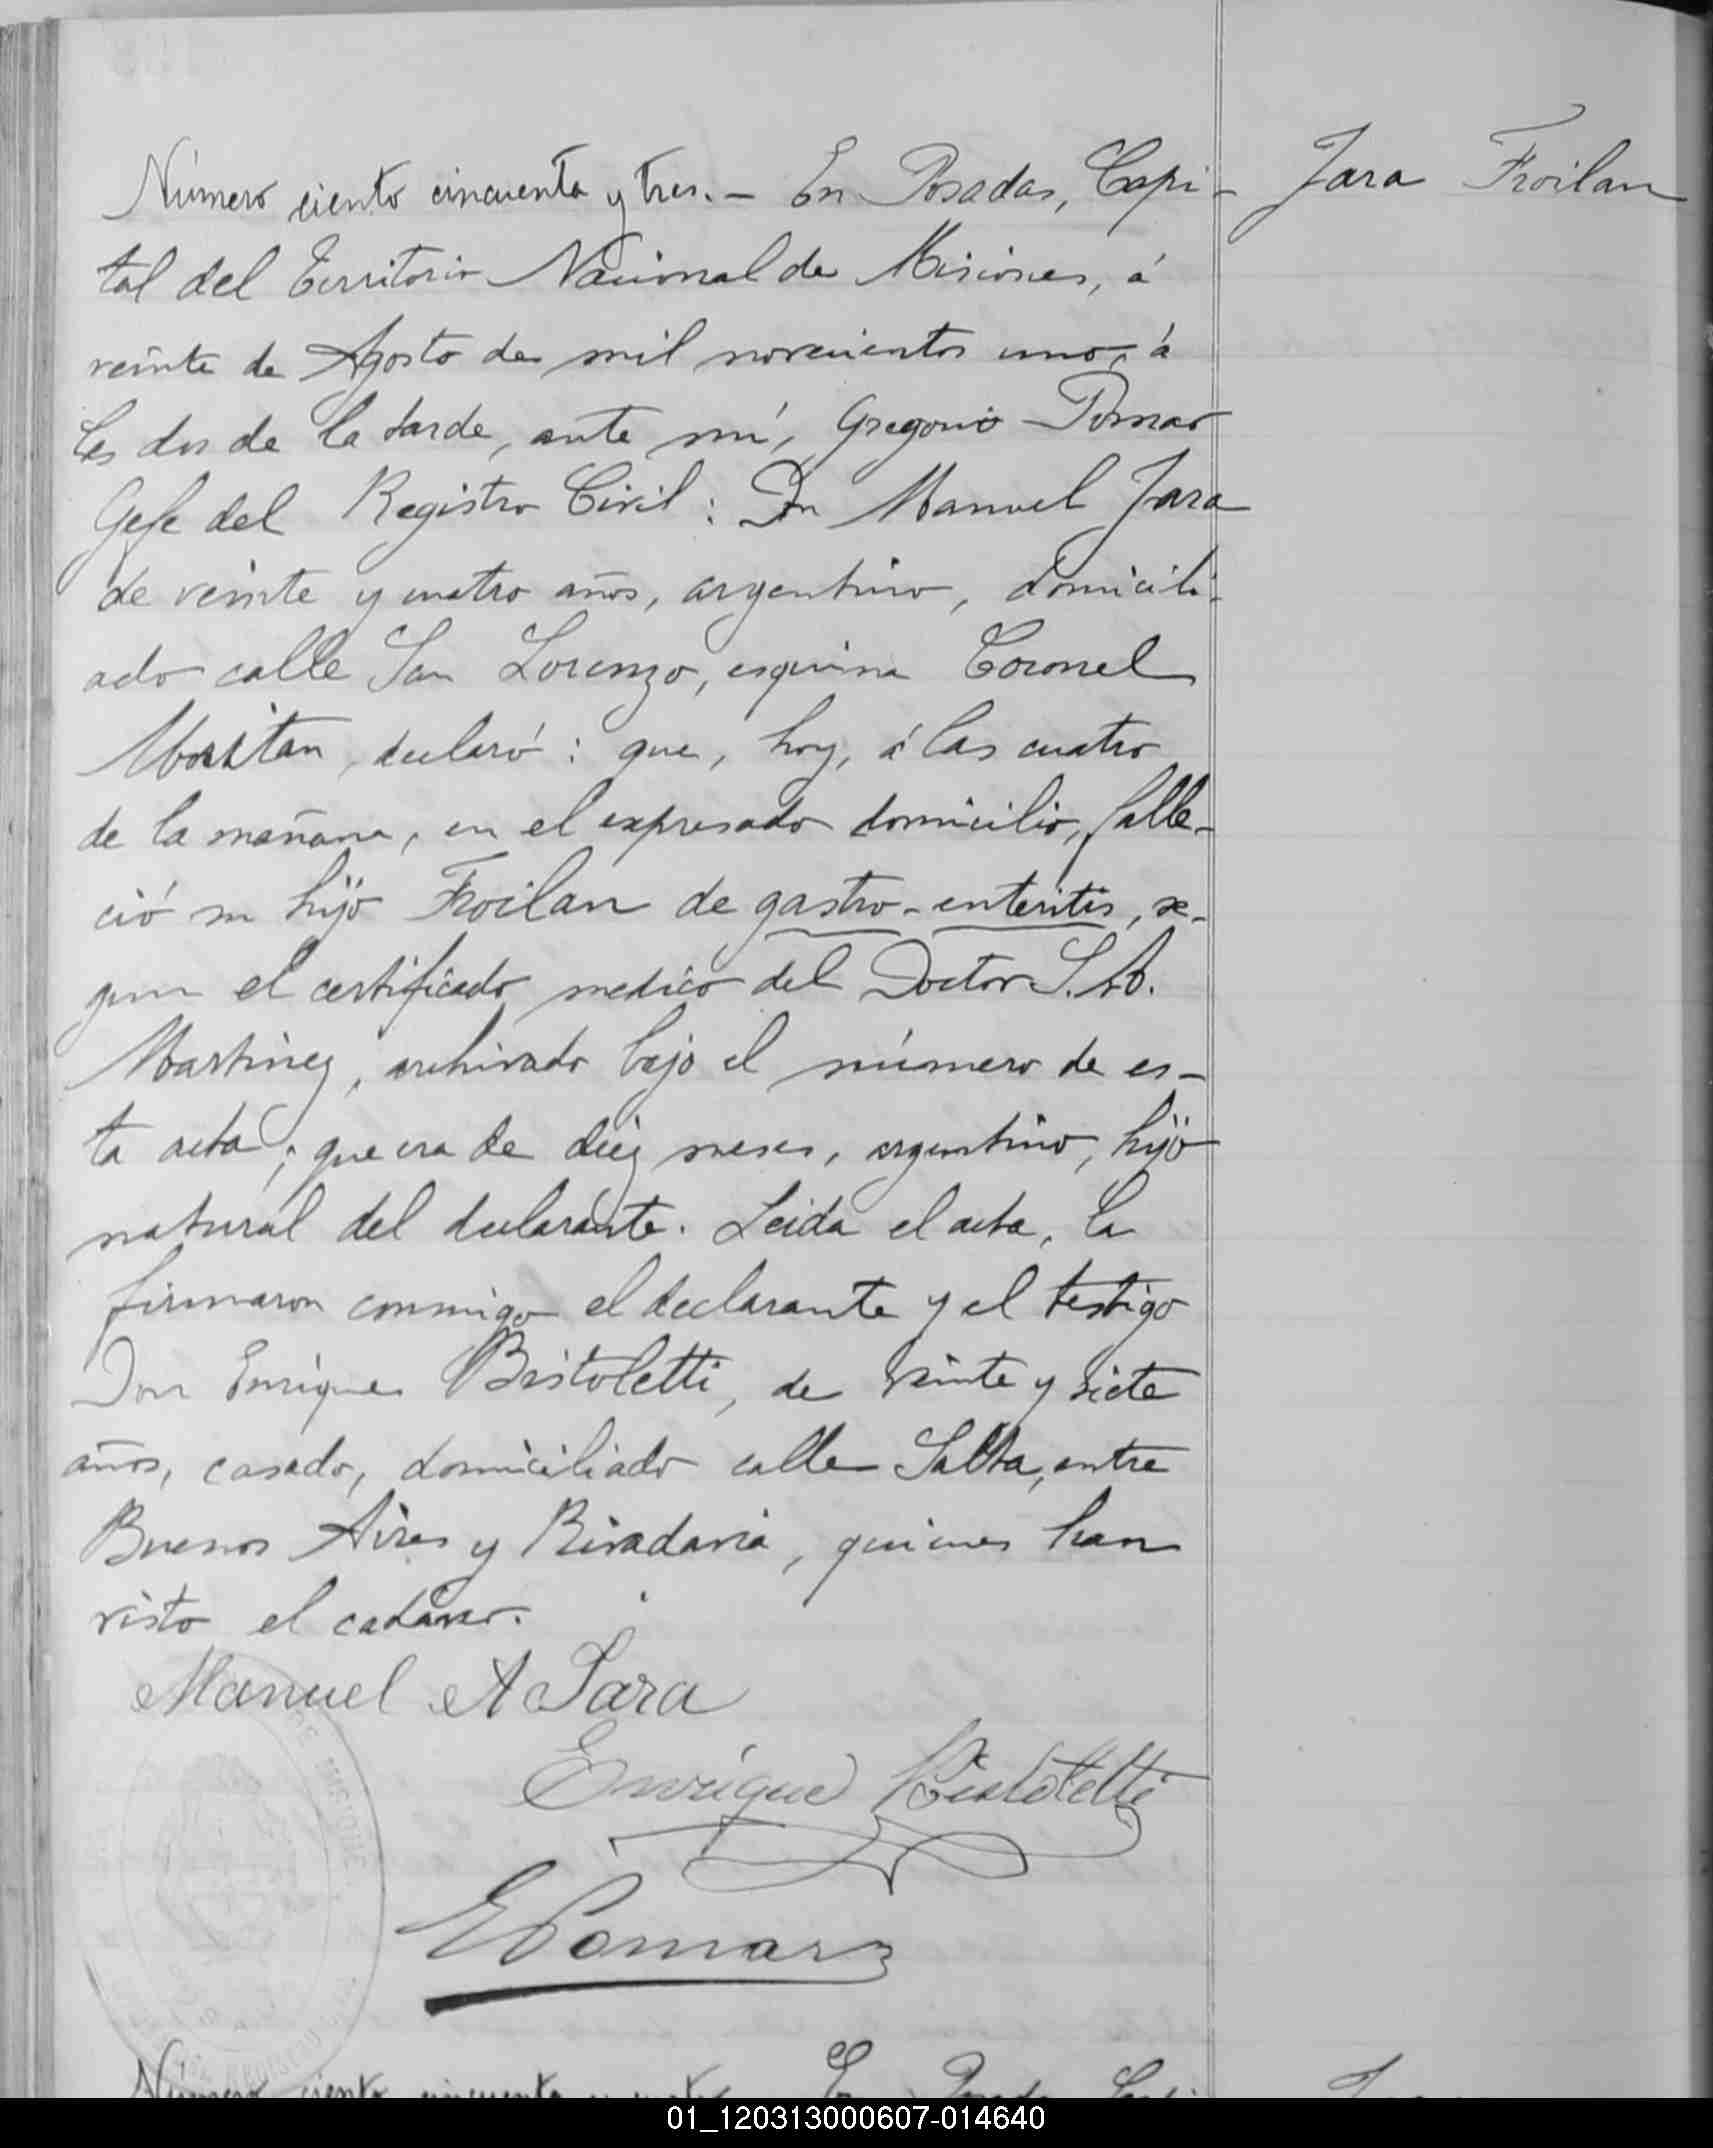 Número ciento cincuenta y tres.- En Posadas, Capi-
Jara Froilan
tal del Territorio Nacional de Misiones, á
veinte de Agosto de mil novecientos uno, á
las dos de la tarde, ante mí, Gregorio Pomar
Gefe del Registro Civil: Dn Manuel Jara
de veinte y cuatro años, argentino, domicili-
ado calle San Lorenzo, esquina Coronel
declaró: que, hoy, á las cuatro
de la mañana, en el expresado domicilio, falle-
ció su hijo Froilan de gastro-enteritis, se-
gun el certificado medico del Doctor S. A.
Martinez, archivado bajo el número de es-
ta acta; que era de diez meses, argentino, hijo
natural del declarante. Leida el acta, la
firmaron conmigo el declarante y el testigo
Don Enrique Bistoletti, de veinte y siete
años, casado, domiciliado calle Salta, entre
Buenos Aires y Rivadavia, quienes han
visto el cadáver.
Manuel A Jara
Enrique Bistoletti
Pomar
Número ciento cincuenta y cuatro En Posadas Capi
01_120313000607-014640